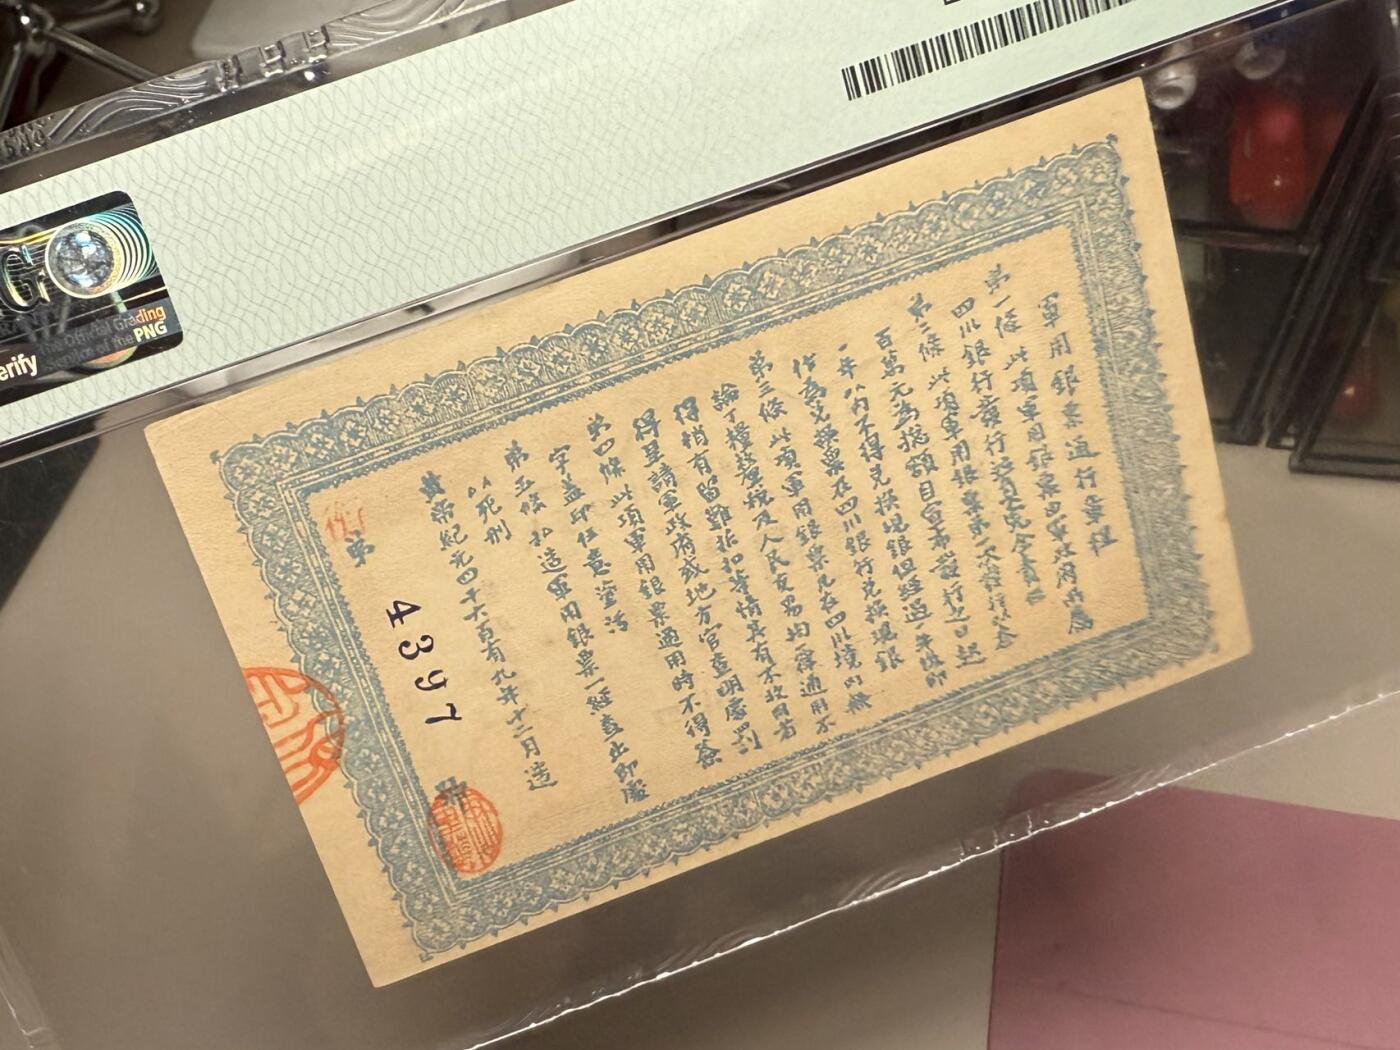 軍用銀票通行章程
第一條 此項軍用銀票由軍政府所屬
四川銀行發行完全責任
第二條 此項軍用銀票第一次發行以叁
百萬元為總額自宣布發行之日起
一年以內不得兌換現銀但經過一年後即
作為兌換票在四川銀行兌換現銀
第三條 此項軍用銀票凡在四川境內無
論丁糧釐稅及人民交易均一律通用不
得稍有留難折扣等情其有不收用者
得呈請軍政府或地方官查明處罰
第四條 此項軍用銀票通用時不得簽
字蓋印任意塗污
第五條 私造軍用銀票一經查出即處
以死刑
黃帝紀元四千六百有九年十二月造
第 4397 號
The Official Grading
Service of the PNG
erify